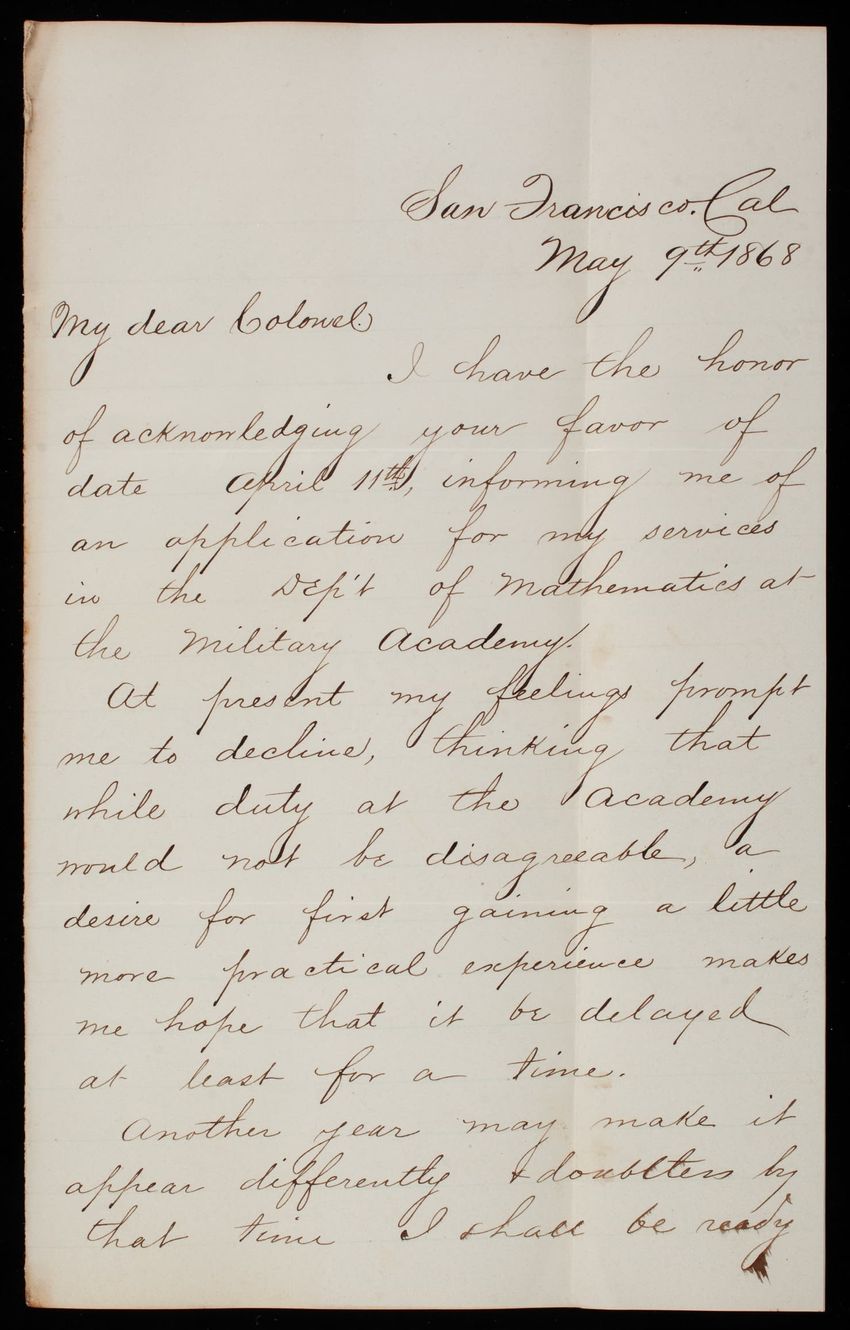 San Francisco. Cal
May 9th 1868
My dear Colonel.
I have the honor
of acknowledging your favor of
date April 11th, informing me of
an application for my services
in the Dep't of Mathematics at
the Military Academy.
At present my feelings prompt
me to decline, thinking that
while duty at the Academy
would not be disagreeable, a
desire for first gaining a little
more practical experience makes
me hope that it be delayed
at least for a time.
Another year may make it
appear differently & doubtless by
that time I shall be ready